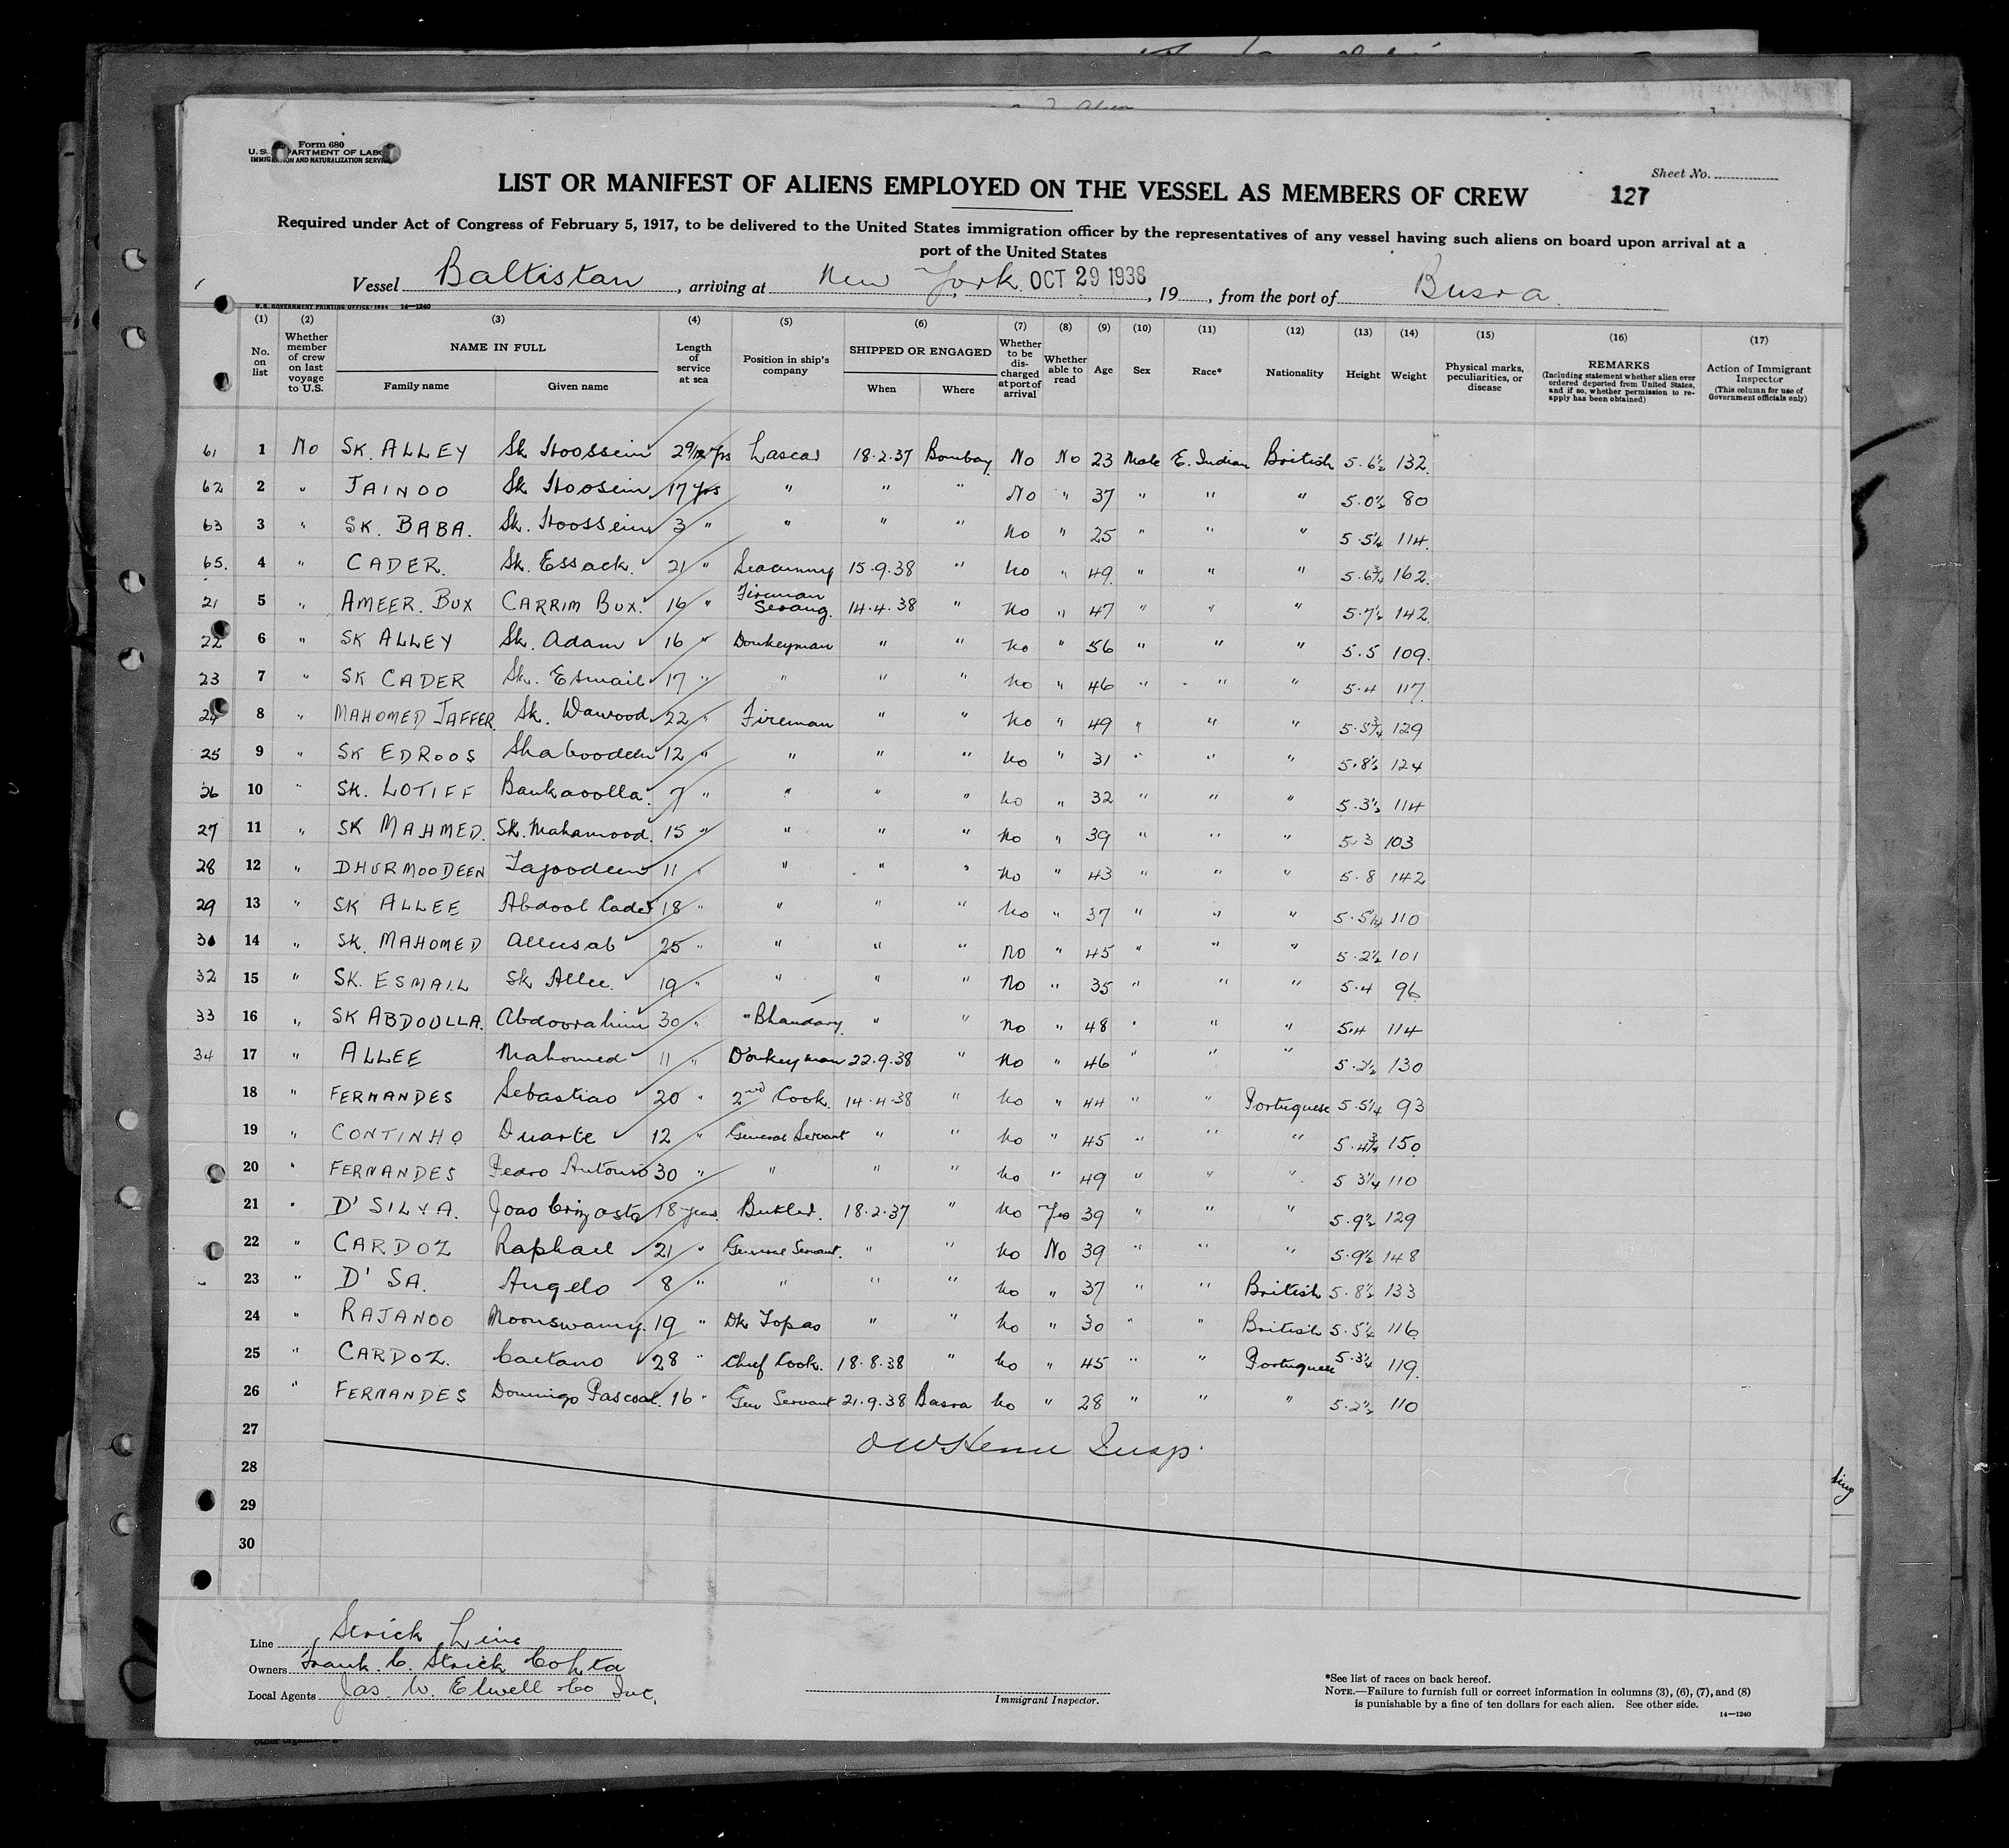 Form 680
U. S. DEPARTMENT OF LABOR
IMMIGRATION AND NATURALIZATION SERVICE
Sheet No.
LIST OR MANIFEST OF ALIENS EMPLOYED ON THE VESSEL AS MEMBERS OF CREW 127
Required under Act of Congress of February 5, 1917, to be delivered to the United States immigration officer by the representatives of any vessel having such aliens on board upon arrival at a
port of the United States
Vessel Baltistan, arriving at New York OCT 29 1938, 19, from the port of Busra.
U. S. GOVERNMENT PRINTING OFFICE: 1934 14—1240
(1) (2) (3) (4) (5) (6) (7) (8) (9) (10) (11) (12) (13) (14) (15) (16) (17)
No. on list
Whether member of crew on last voyage to U.S.
NAME IN FULL
Family name Given name
Length of service at sea
Position in ship's company
SHIPPED OR ENGAGED
When Where
Whether to be discharged at port of arrival
Whether able to read
Age
Sex
Race*
Nationality
Height
Weight
Physical marks, peculiarities, or disease
REMARKS
(Including statement whether alien ever ordered deported from United States, and if so, whether permission to reapply has been obtained)
Action of Immigrant Inspector
(This column for use of Government officials only)
61 1 No SK. ALLEY Sk Hoossein 2 9/12 Yrs Lascar 18.2.37 Bombay No No 23 Male E. Indian British 5.6½ 132.
62 2 " JAINOO Sk Hoosein 17 yrs " " " No " 37 " " " 5.0½ 80
63 3 " SK. BABA. Sk. Hoossein 3 " " " " No " 25 " " " 5.5¼ 114.
65. 4 " CADER. Sk. Essack. 21 " Seacunny 15.9.38 " No " 49. " " " 5.6¾ 162.
21 5 " AMEER. BUX CARRIM BUX. 16 " Fireman Serang. 14.4.38 " No " 47 " " " 5.7½ 142.
22 6 " SK ALLEY Sk. Adam 16 " Donkeyman " " No " 56 " " " 5.5 109.
23 7 " SK CADER Sk. Esmail 17 " " " " No " 46 " " " 5.4 117.
24 8 " MAHOMED JAFFER. Sk. Dawood 22 " Fireman " " No " 49 " " " 5.5¾ 129
25 9 " SK EDROOS Shaboodeen 12 " " " " No " 31 " " " 5.8½ 124
26 10 " SK. LOTIFF Bankaoolla. 7 " " " " No " 32 " " " 5.3½ 114
27 11 " SK MAHMED. Sk. Mahamood. 15 " " " " No " 39 " " " 5.3 103
28 12 " DHURMOODEEN Tajoodeen 11 " " " " No " 43 " " " 5.8 142
29 13 " SK ALLEE Abdool Cader 18 " " " " No " 37 " " " 5.5¼ 110
14 " SK. MAHOMED Alleesab 25 " " " " No " 45 " " " 5.2½ 101
32 15 " SK. ESMAIL Sk Allee. 19 " " " " No " 35 " " " 5.4 96
33 16 " SK ABDOULLA. Abdoorahim 30 " " Bhandary " " No " 48 " " " 5.4 114
34 17 " ALLEE Mahomed 11 " Donkeyman 22.9.38 " No " 46 " " " 5.2½ 130
18 " FERNANDES Sebastiao 20 " 2nd Cook. 14.4.38 " No " 44 " " Portuguese 5.5¼ 93
19 " CONTINHO Duarte 12 " General Servant " " No " 45 " " " 5.4¾ 150
20 " FERNANDES Pedro Antonio 30 " " " " No " 49 " " " 5 3¼ 110
21 " D' SILVA. Joao 18 years Butler. 18.2.37 " No Yes 39 " " " 5.9½ 129
22 " CARDOZ Raphael 21 " General Servant. " " No No 39 " " " 5.9½ 148
23 " D' SA. Angelo 8 " " " " No " 37 " " British 5.8½ 133
24 " RAJANOO Moonswamy. 19 " Dk Topas " " No " 30 " " British 116
25 " CARDOZ. Caetano 28 " Chief Cook. 18.8.38 " No " 45 " " Portuguese 5.3¼ 119.
26 " FERNANDES Domingo Pascoal. 16 " Gen Servant 21.9.38 Basra No " 28 " " " 5.2½ 110
27 Insp.
28
29
30
Line Strick Line
Owners Frank. C. Strick Co Ltd
Local Agents Jas. W. Elwell &Co Inc.
Immigrant Inspector.
*See list of races on back hereof.
NOTE.—Failure to furnish full or correct information in columns (3), (6), (7), and (8)
is punishable by a fine of ten dollars for each alien. See other side.
14—1240